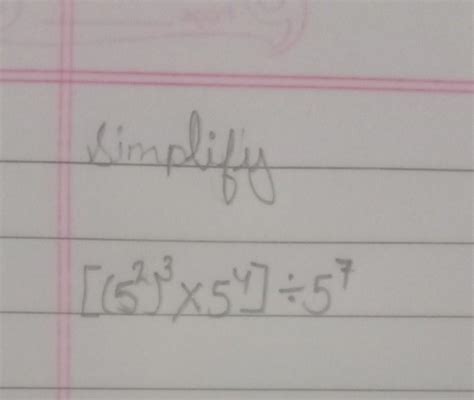 Simplify
[(5²)³×5⁴]÷5⁷